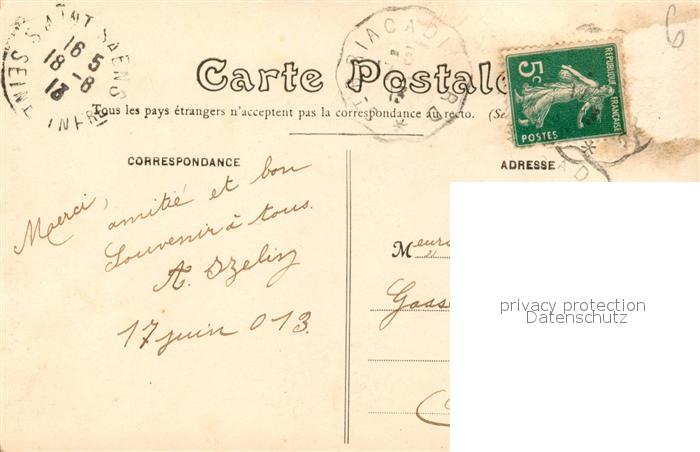 SAINT SAENS
16 5
18-6
13
SEINE INFRE
6
Carte Postale
5c
REPUBLIQUE FRANÇAISE
POSTES
Tous les pays étrangers n'acceptent pas la correspondance au recto. (Se
CORRESPONDANCE
ADRESSE
Merci,
amitié et bon
Souvenir à tous.
A.
17 juin 013.
M
privacy protection
Datenschutz